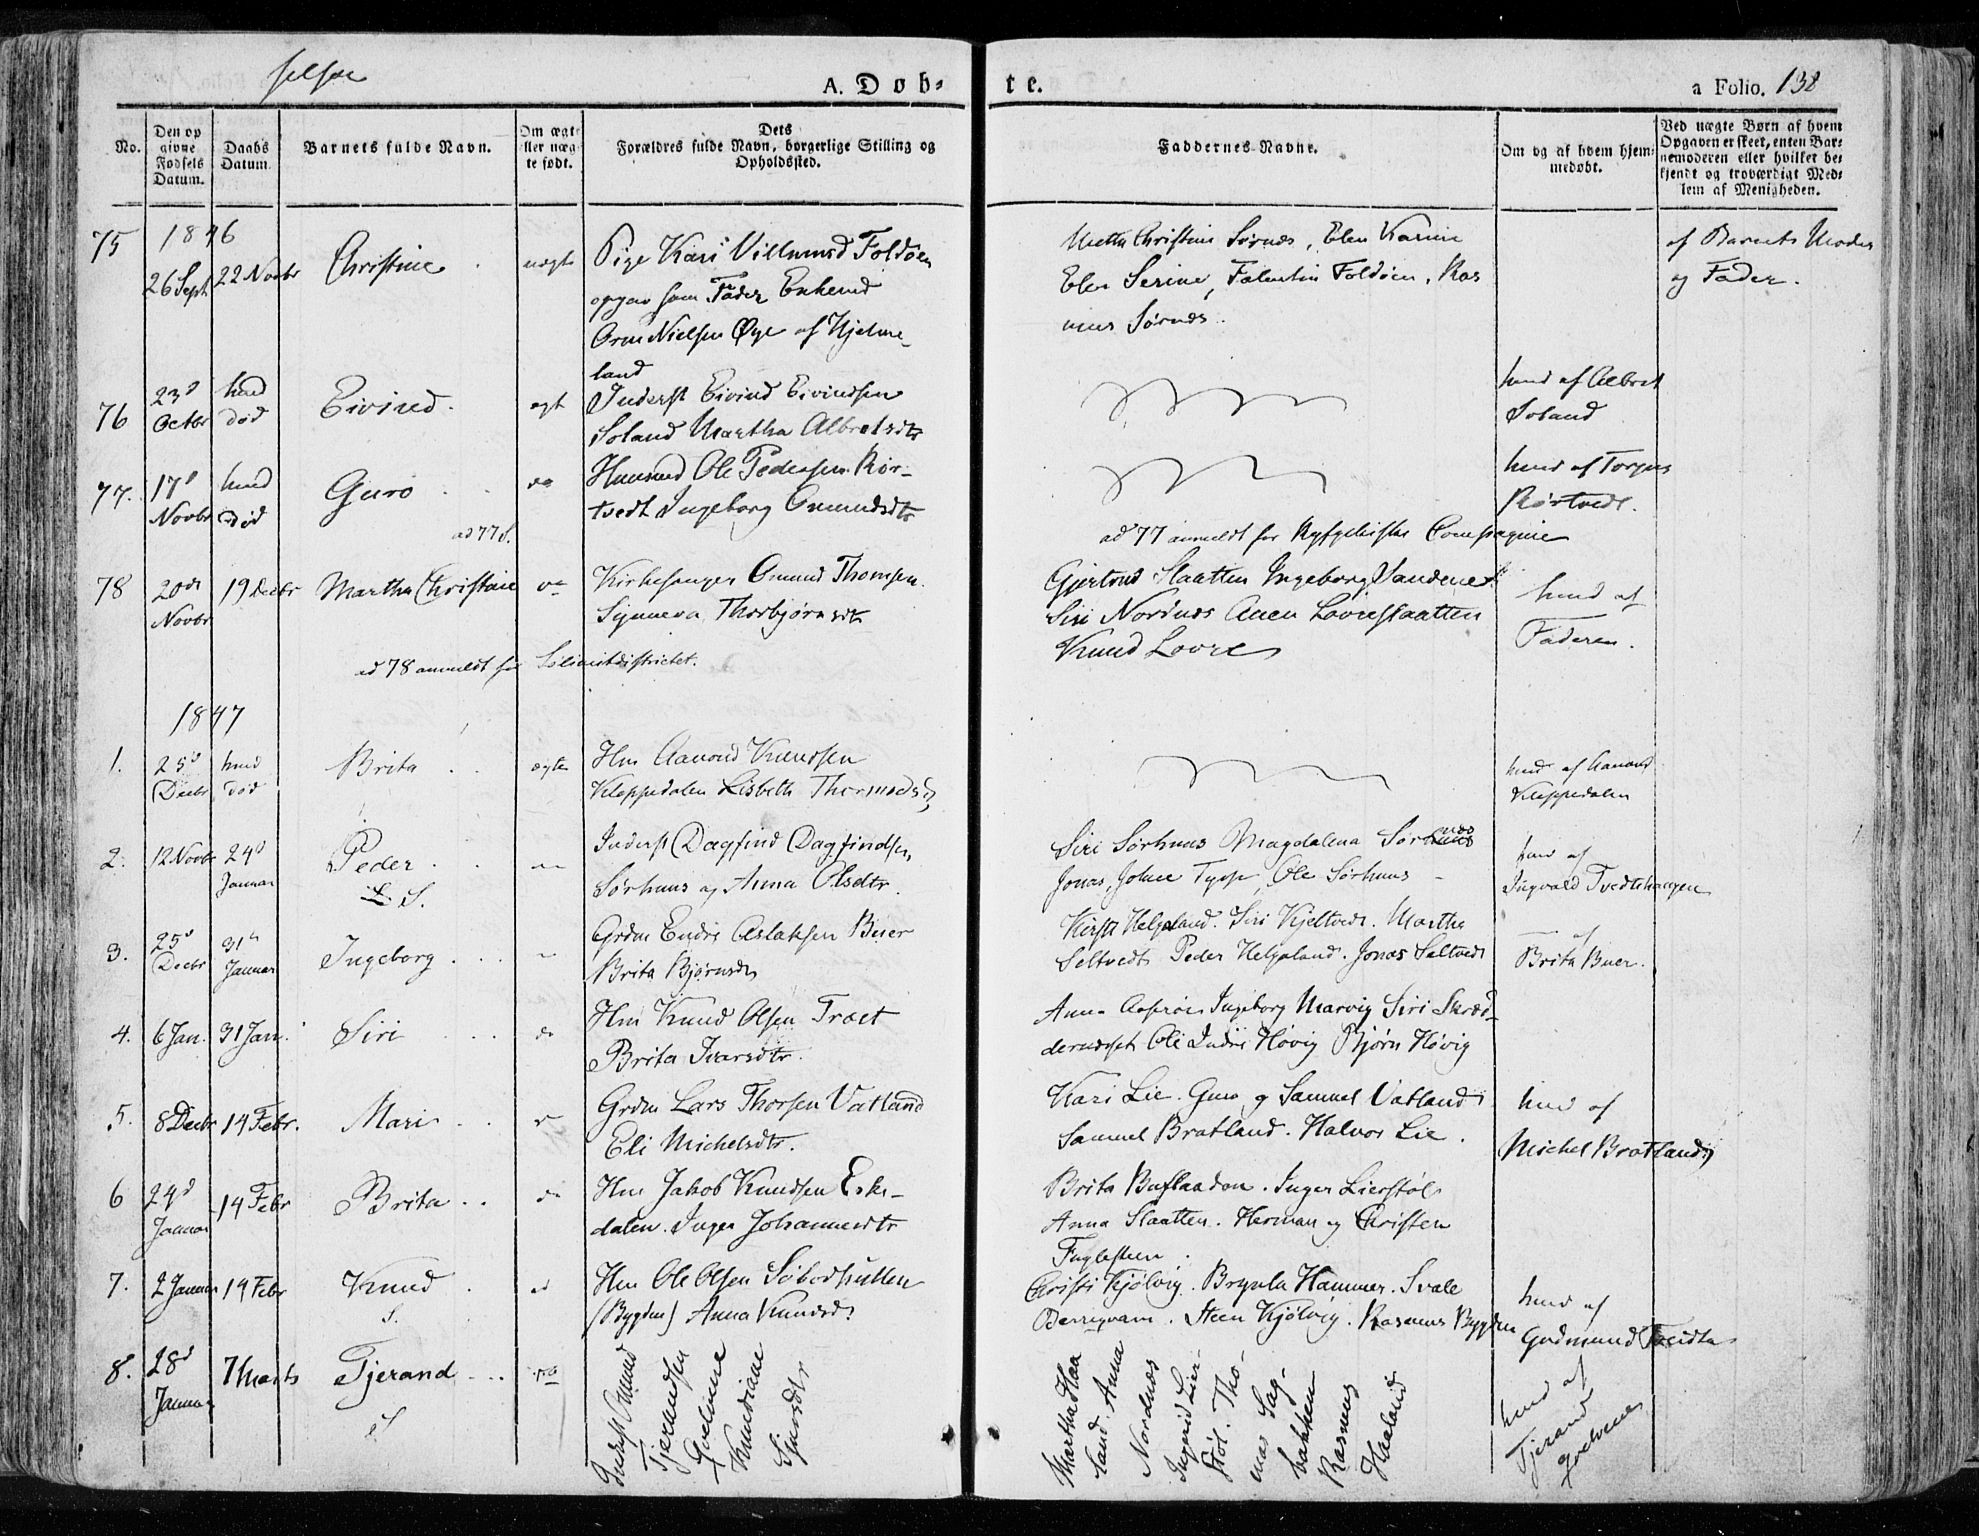 A. Døb-
te.
a Folio. 138
No.
Den op
givne
Fødsels
Datum.
Daabs
Datum.
Barnets fulde Navn.
Om ægte
eller uæg
te født.
Dets
Forældres fulde Navn, borgerlige Stilling og
Opholdssted.
Faddernes Navne.
Om og af hvem hjem
medøbt.
Ved uægte Børn af hvem
Opgaven er skeet, enten Bar-
nemoderen eller hvilket be-
kjendt og troværdigt Med-
lem af Menigheden.
1846
75
26 Sept
22 Novbr
Christine
uægte
Pige Kari Villumsd Foldøen
opgav som Fader Enkemd
Orm Nielsen Øye af Hjelme-
land
Metta Christine Sørnes, Elen Karine
Elen Serine, Falentin Foldøen, Ras
mus Sørnes.
af Barnets Moder
og Fader.
76
23d
Octbr
hmd
død
Eivind.
ægt
Inderst Eivind Eivindsen
Soland Martha Albretsdtr
hmd af Albret
Soland
77.
17d
Novbr
hmd
død
Guro
do
Huusmd Ole Pedersen Rør-
tvedt Ingeborg Omundsdtr
hmd af Torger
Rørtvedt.
ad 77 S.
ad 77 anmeldt for Ryfylkiske Compagnie
78
20de
Novbr
19 Decbr
Martha Christine
do
Kirkesanger Omund Thomsen
Synneva Thorbjørnsdtr
Gjertrud Slaatten Ingeborg Sandene
Siri Nordnes Anen Lovreslaatten
Knud Lovre
hmd af
Faderen.
ad 78 anmeldt for Sølimitdistrictet.
1847
1.
25d
Decbr
hmd
død
Brita
ægte
Hm Aanond Knudsen
Kleppedalen Lisbeth Thormodsd
hmd af Aanond
Kleppedalen
2.
12 Novbr
24d
Januar
Peder
S.
Inderst Dagfind Dagfindsen
Sørhuus og Anna Olsdtr.
Siri Sørhuus Magdalena Sørhuus
Jonas, Johne Tysse, Ole Sørhuus
hmd af
Ingvald Tvedthaugen
3.
25d
Decbr
31te
Januar
Ingeborg
Grdm Endre Aslaksen Buer
Brita Bjørnsdtr
Kirsti Helgeland. Siri Kjeltvedt. Martha
Seltvedt Peder Helgeland. Jonas Seltvedt
af
Brita Buer.
4.
6 Jan.
31 Jan.
Siri
do
Hm Knud Olsen Træet
Brita Ivarsdtr.
Anna Asprøen Ingeborg Marvig Siri Skræd-
dernesset Ole Indre Høvig Bjørn Høvig
5.
8 Decbr
14 Febr.
Mari
Grdm Lars Thorsen Vatland
Eli Michelsdtr.
Kari Lie. Guro og Samuel Vatland
Samuel Bratland. Halvor Lie.
hmd af
Michel Bratland
6
24d
Januar
14 Febr
Brita
do
Hm Jakob Knudsen Eske-
dalen. Inger Johannesdtr
Brita Indlaaden. Inger Lierstøl
Anna Slaatten. Herman og Christen
Fuglesteen.
7.
2 Januar
14 Febr
Knud
S.
Hm Ole Olsen
(Bygden) Anna Knudsdtr
Christi Kjølvig. Brynla Hammer. Svale
Steen Kjølvig. Rasmus Bygden
hmd af
Gudmund Tveidta
8.
28d
Januar
7 Marts
Tjerand
Inderst Omund
Tjerandsen
Qvelvene
Kundiane
Sjursdtr
Martha Haa
land. Anna
Nordnes
Ingrid Lier-
støl. Tho-
mas Hag-
bakken
Rasmus
Haaland
hmd af
Tjerand
Qvelvene